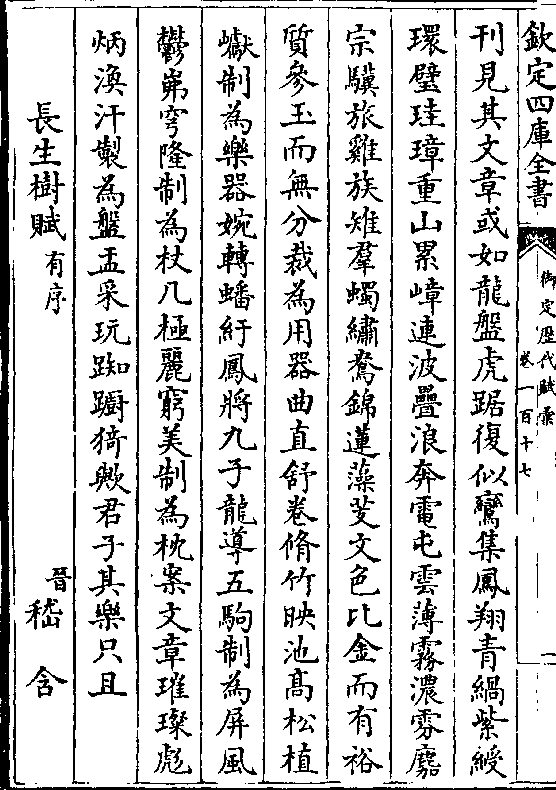 欽定四庫全書
御定歷代賦彙
卷一百十七
一
刊見其文章或如龍盤虎踞復似鸞集鳳翔青緺紫綬
環璧珪璋重山累嶂連波疊浪奔電屯雲薄霧濃雰麚
宗驥旅雞族雉羣蠋繡鴦錦蓮藻芰文色比金而有裕
質參玉而無分裁為用器曲直舒卷脩竹映池高松植
巘制為樂器婉轉蟠紆鳳將九子龍導五駒制為屏風
鬱岪穹隆制為杖几極麗窮美制為枕案文章璀璨彪
炳渙汗製為盤盂采玩踟躕猗歟君子其樂只且
長生樹賦有序
晉嵇含